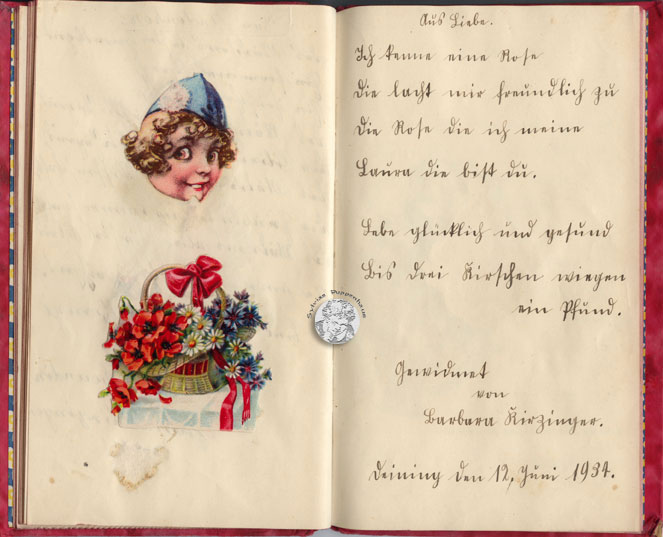 Aus Liebe.
Ich kenne eine Rose
Die lacht mir freundlich zu
Die Rose die ich meine
Laura die bist du.
Lebe glücklich und gesund
Bis drei Kirschen wiegen
ein Pfund.
Gewidmet
von
Barbara Kirzinger.
Deining den 12. Juni 1934.
Sylvias Puppenhaus